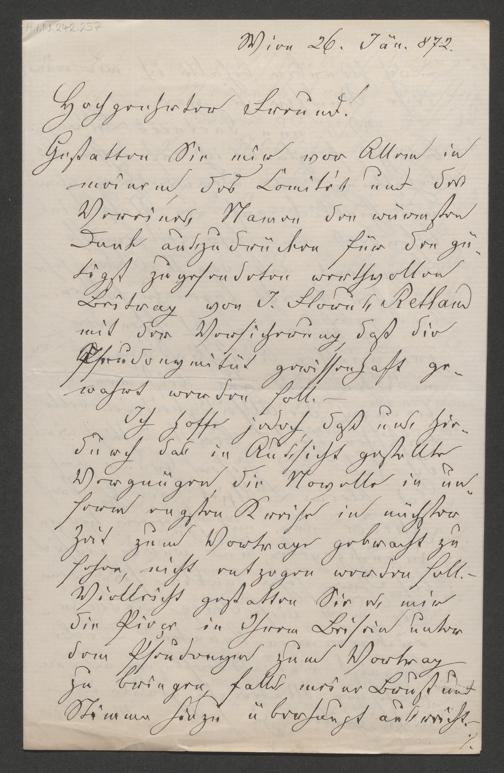 Wien 26. Jän. 872.
Hochgeehrter Freund!
Gestatten Sie mir vor Allem in
meinem, des Comité's und des
Vereines Namen den wärmsten
Dank auszudrücken für den gü-
tigst zugesendeten werthvollen
Beitrag von J. Retland
mit der Versicherung, daß die
Pseudonymität gewissenhaft ge-
wahrt werden soll. –
Ich hoffe jedoch, daß uns hie-
durch das in Aussicht gestellte
Vergnügen, die Novelle in un-
serm engsten Kreise in nächster
Zeit zum Vortrage gebracht zu
sehen, nicht entzogen werden soll. –
Vielleicht gestatten Sie es mir
die Pièce in Ihrem Beisein unter
dem Pseudonym zum Vortrag
zu bringen, falls meine Brust und
Stimme hiezu überhaupt ausreicht. –
./.